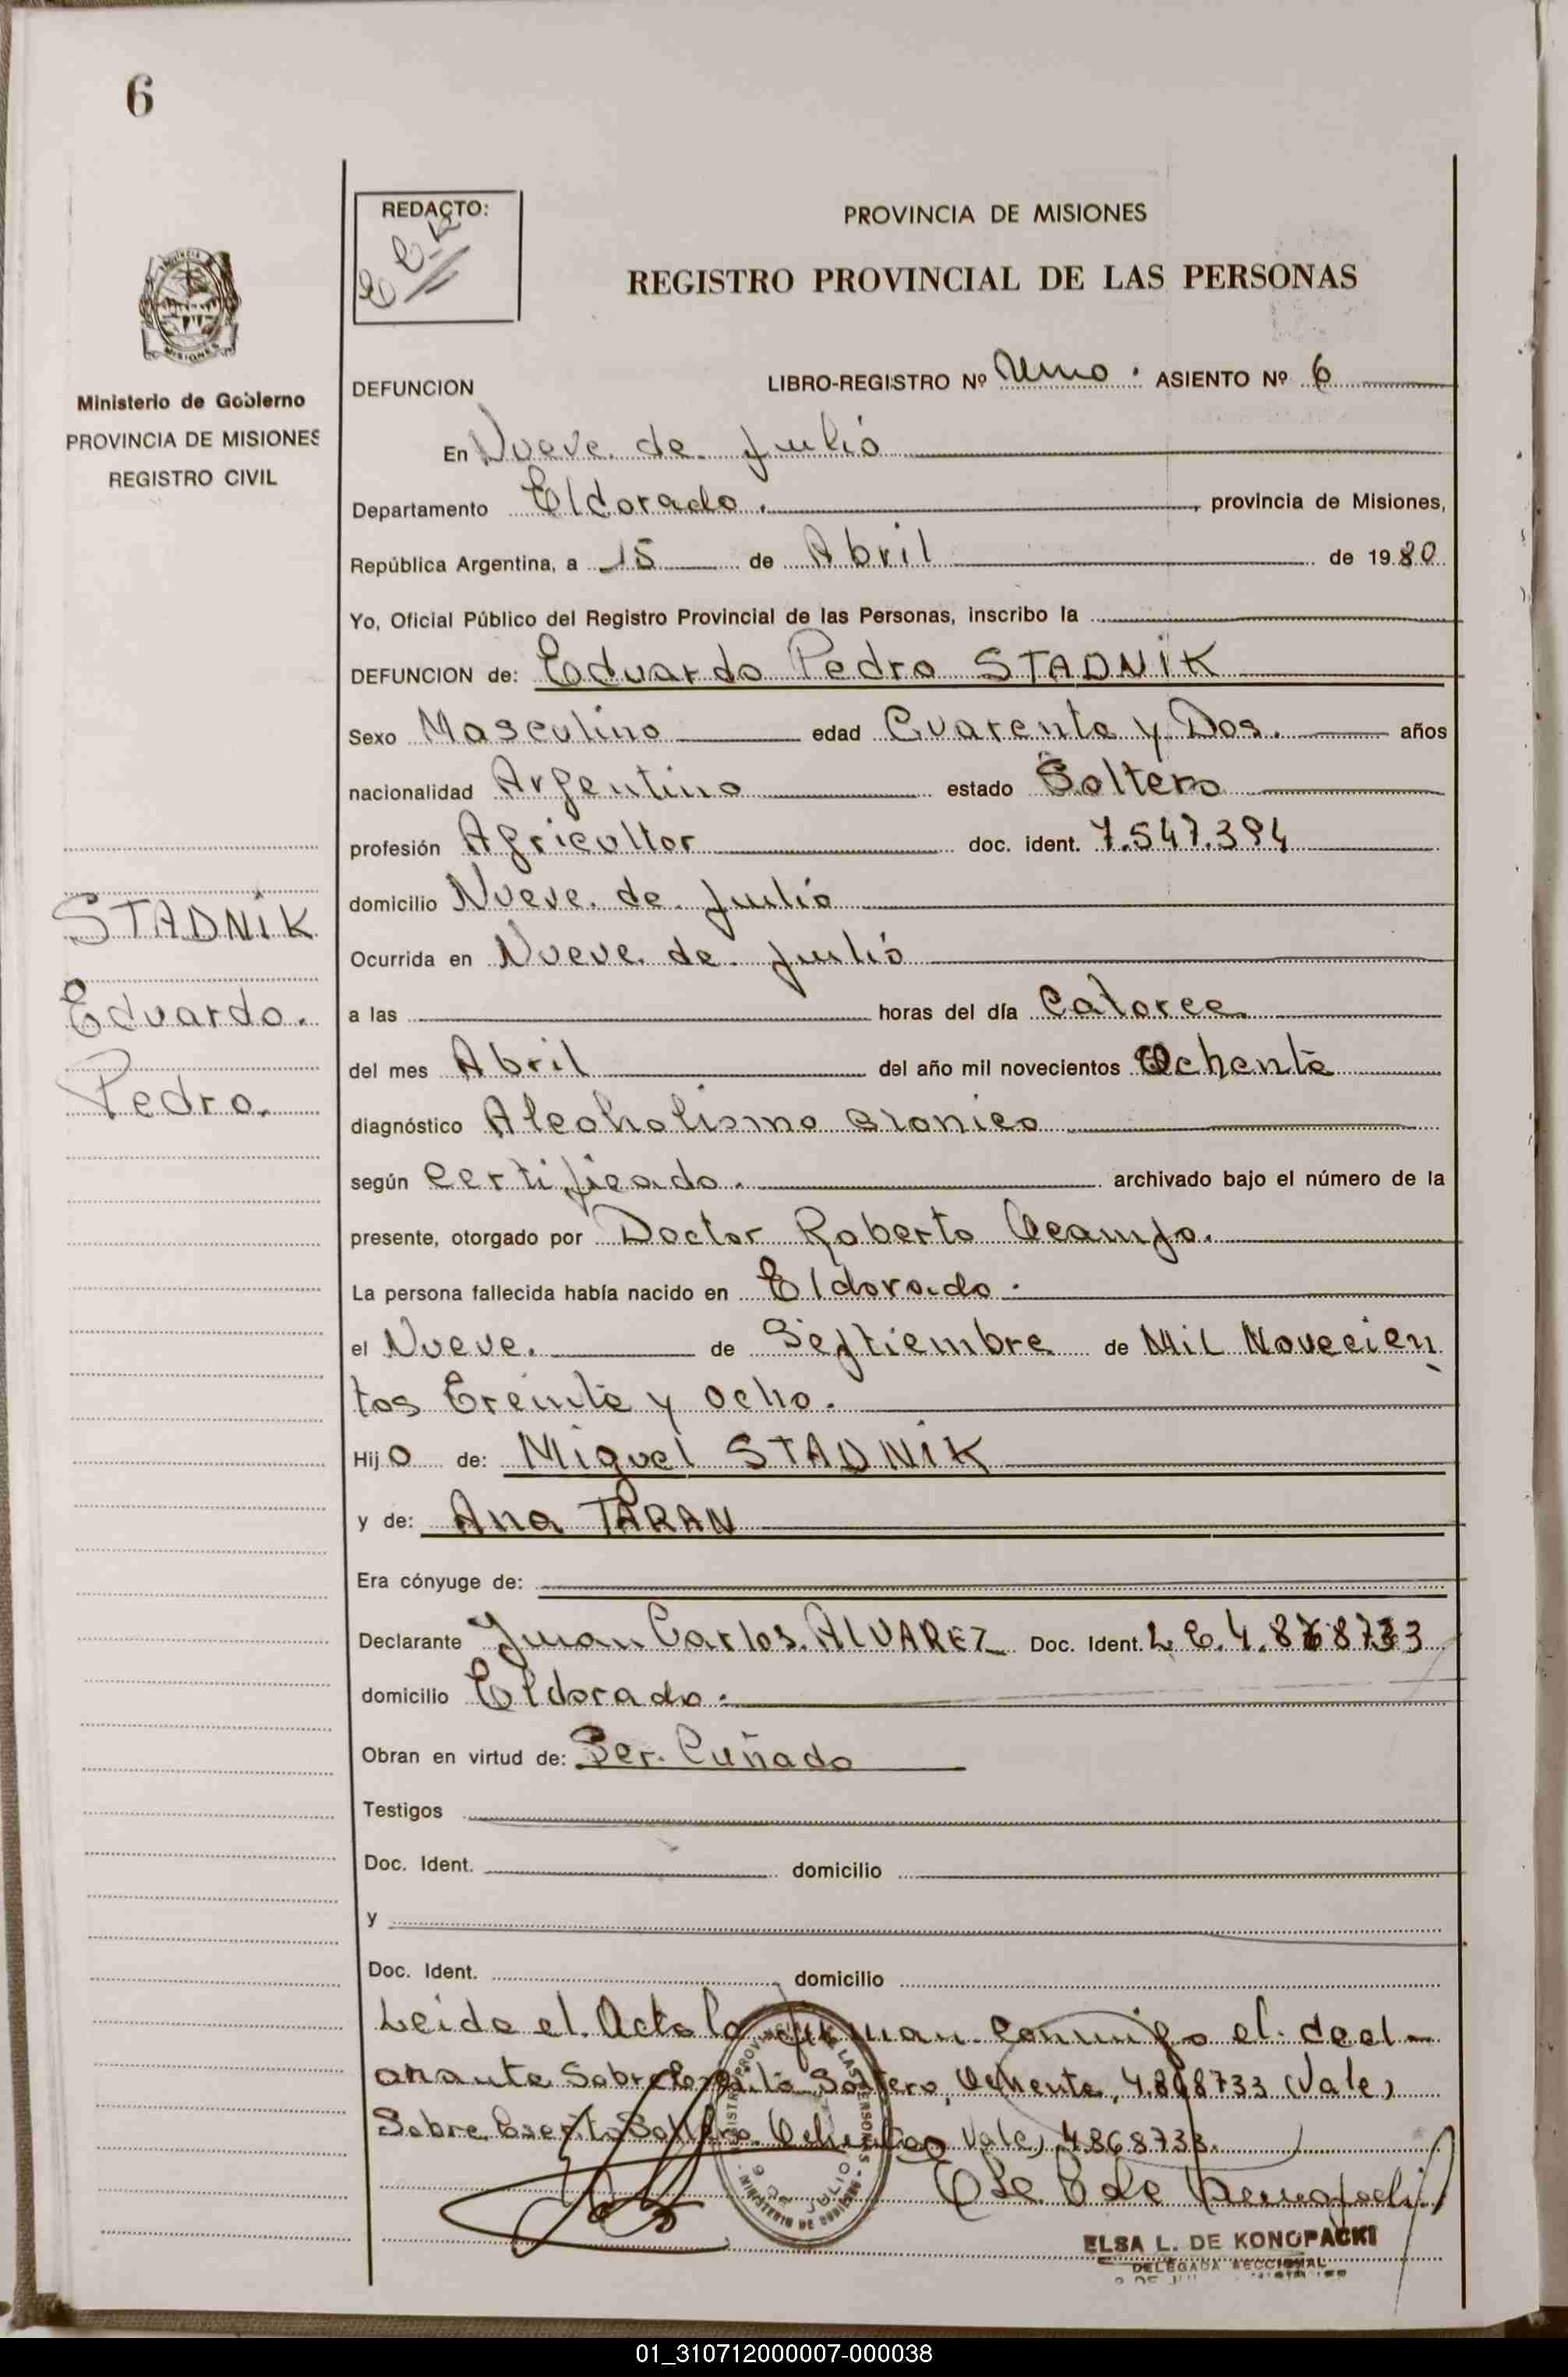 6
REDACTO:
PROVINCIA DE MISIONES
REGISTRO PROVINCIAL DE LAS PERSONAS
Ministerio de Gobierno
PROVINCIA DE MISIONES
REGISTRO CIVIL
DEFUNCION LIBRO-REGISTRO Nº Uno. ASIENTO Nº 6
En Nueve de Julio
Departamento Eldorado., provincia de Misiones,
República Argentina, a 15 de Abril de 1980
Yo, Oficial Público del Registro Provincial de las Personas, inscribo la
DEFUNCION de: Eduardo Pedro STADNIK
Sexo Masculino edad Cuarenta y Dos. años
nacionalidad Argentino estado Soltero
profesión Agricultor doc. ident. 7.547.394
domicilio Nueve de Julio
STADNIK
Ocurrida en Nueve de Julio
Eduardo.
a las horas del día Catorce
del mes Abril del año mil novecientos Ochenta
Pedro.
diagnóstico Alcoholismo cronico
según certificado. archivado bajo el número de la
presente, otorgado por Doctor Roberto Ocampo.
La persona fallecida había nacido en Eldorado.
el Nueve. de Septiembre de Mil Novecien
tos Treinta y ocho.
Hijo de: Miguel STADNIK
y de: Ana TARAN
Era cónyuge de:
Declarante Juan Carlos ALVAREZ Doc. Ident. L E. 4.868733
domicilio Eldorado.
Obran en virtud de: Ser Cuñado
Testigos
Doc. Ident. domicilio
y
Doc. Ident. domicilio
Leida el Acta la firman conmigo el decl
arante Sobre Soltero, Ochenta, 4.868733 (Vale)
Sobre Escrito Soltero Ochenta Vale) 4868733.
REGISTRO PROVINCIAL DE LAS PERSONAS
9 DE JULIO
MINISTERIO DE GOBIERNO
ELSA L. DE KONOPACKI
DELEGADA SECCIONAL
01_310712000007-000038